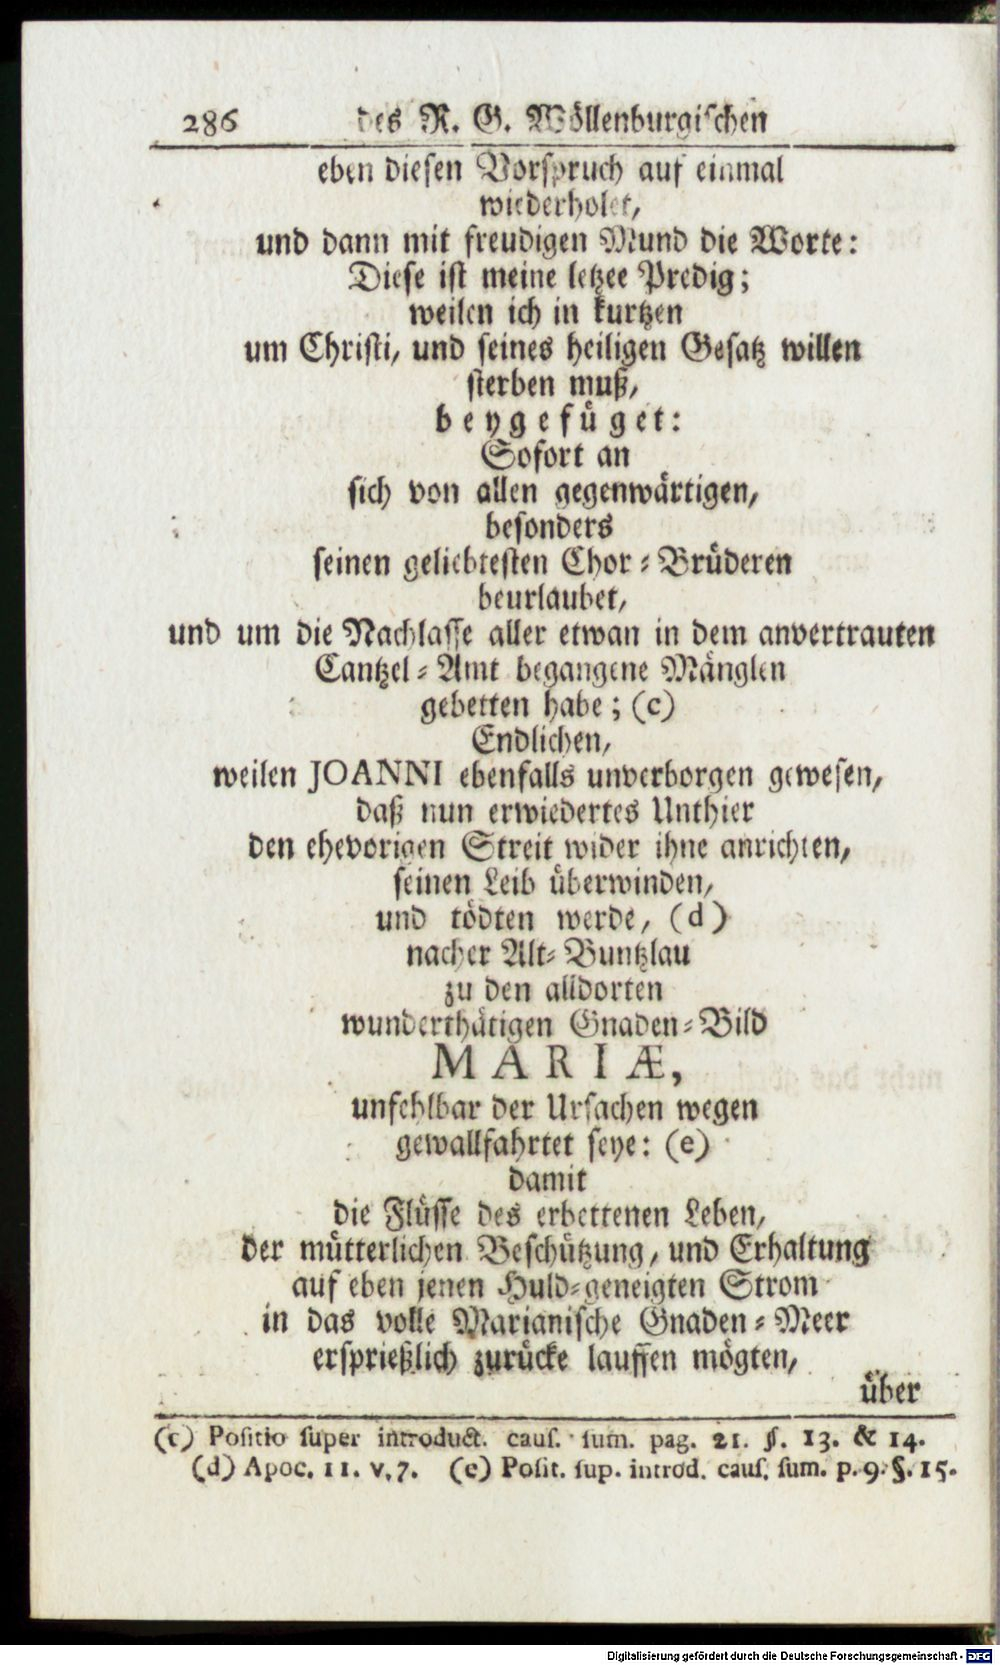 286 des R. G. Wöllenburgischen
eben diesen Vorspruch auf einmal
wiederholet,
und dann mit freudigen Mund die Worte:
Diese ist meine letzee Predig;
weilen ich in kurtzen
um Christi, und seines heiligen Gesatz willen
sterben muß,
beygefüget:
Sofort an
sich von allen gegenwärtigen,
besonders
seinen geliebtesten Chor-Brüderen
beurlaubet,
und um die Nachlasse aller etwan in dem anvertrauten
Cantzel-Amt begangene Mänglen
gebetten habe; (c)
Endlichen,
weilen JOANNI ebenfalls unverborgen gewesen,
daß nun erwiedertes Unthier
den ehevorigen Streit wider ihne anrichten,
seinen Leib überwinden,
und tödten werde, (d)
nacher Alt-Buntzlau
zu den alldorten
wunderthätigen Gnaden-Bild
MARIÆ,
unfehlbar der Ursachen wegen
gewallfahrtet seye: (e)
damit
die Flüsse des erbettenen Leben,
der mütterlichen Beschützung, und Erhaltung
auf eben jenen Huld-geneigten Strom
in das volle Marianische Gnaden-Meer
ersprießlich zurücke lauffen mögten,
über
(c) Positio super introduct. caus. sum. pag. 21. §. 13. & 14.
(d) Apoc. 11. v. 7. (e) Posit. sup. introd. caus. sum. p. 9. §. 15.
Digitalisierung gefördert durch die Deutsche Forschungsgemeinschaft - DFG